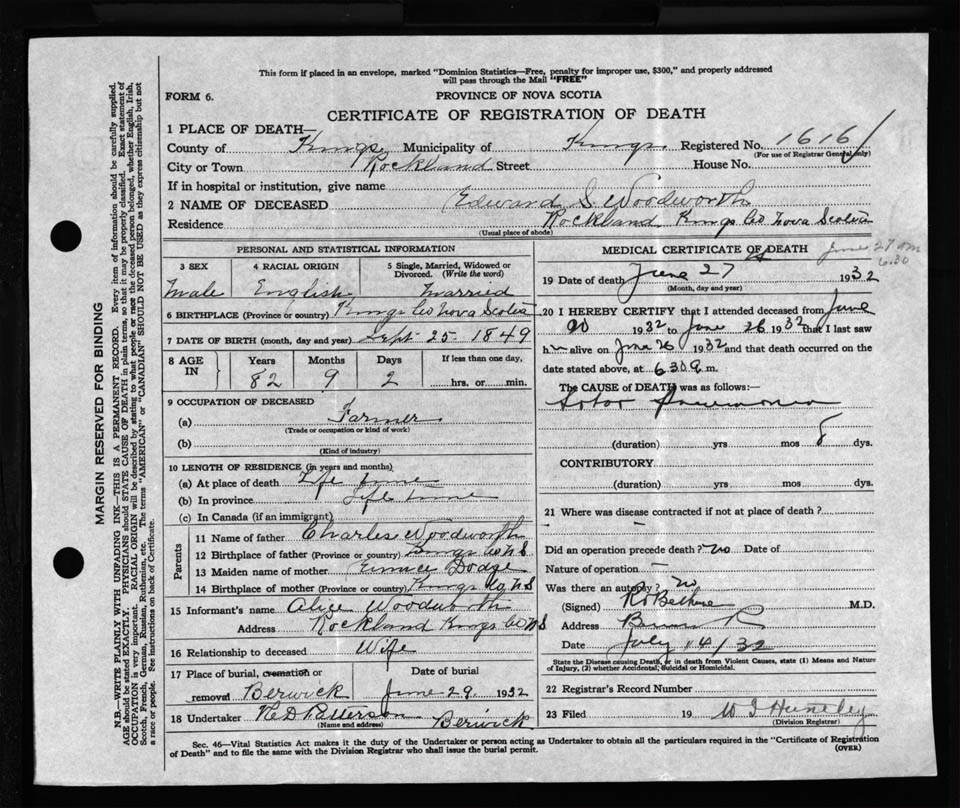 This form if placed in an envelope, marked "Dominion Statistics—Free, penalty for improper use, $300," and properly addressed
will pass through the Mail "FREE"
FORM 6.
PROVINCE OF NOVA SCOTIA
CERTIFICATE OF REGISTRATION OF DEATH
1 PLACE OF DEATH—
County of Kings Municipality of Kings Registered No. 1616
(For use of Registrar General only)
City or Town Rockland Street House No.
If in hospital or institution, give name
2 NAME OF DECEASED Edward S Woodworth
Residence Rockland Kings Co Nova Scotia
(Usual place of abode)
PERSONAL AND STATISTICAL INFORMATION
3 SEX 4 RACIAL ORIGIN 5 Single, Married, Widowed or Divorced. (Write the word)
Male English Married
6 BIRTHPLACE (Province or country) Kings Co Nova Scotia
7 DATE OF BIRTH (month, day and year) Sept 25 - 1849
8 AGE IN Years Months Days If less than one day,
82 9 2 hrs. or min.
9 OCCUPATION OF DECEASED
(a) Farmer
(Trade or occupation or kind of work)
(b)
(Kind of industry)
10 LENGTH OF RESIDENCE (in years and months)
(a) At place of death Life time
(b) In province Life time
(c) In Canada (if an immigrant)
Parents
11 Name of father Charles Woodworth
12 Birthplace of father (Province or country) Kings Co N S
13 Maiden name of mother Eunice Dodge
14 Birthplace of mother (Province or country) Kings Co N S
15 Informant's name Alice Woodworth
Address Rockland Kings Co N S
16 Relationship to deceased Wife
17 Place of burial, cremation or removal Berwick Date of burial June 29 1932
18 Undertaker Patterson Berwick
(Name and address)
MEDICAL CERTIFICATE OF DEATH
June 27 am
6.30
19 Date of death June 27 1932
(Month, day and year)
20 I HEREBY CERTIFY that I attended deceased from June
20 1932 to June 26 1932 that I last saw
h alive on June 26 1932 and that death occurred on
date stated above, at 6.30 a m.
The CAUSE of DEATH was as follows:—
Lobar Pneumonia
(duration) yrs mos 8 dys.
CONTRIBUTORY
(duration) yrs mos dys.
21 Where was disease contracted if not at place of death?
—
Did an operation precede death? no Date of
Nature of operation —
Was there an autopsy? no
(Signed) M.D.
Address
Date July 14/32
State the Disease causing Death, or in death from Violent Causes, state (1) Means and Nature
of Injury, (2) whether Accidental, Suicidal or Homicidal.
22 Registrar's Record Number
23 Filed 19 Huntley
(Division Registrar)
Sec. 46—Vital Statistics Act makes it the duty of the Undertaker or person acting as Undertaker to obtain all the particulars required in the "Certificate of Registration
of Death" and to file the same with the Division Registrar who shall issue the burial permit. (OVER)
MARGIN RESERVED FOR BINDING
N.B.—WRITE PLAINLY WITH UNFADING INK—THIS IS A PERMANENT RECORD. Every item of information should be carefully supplied.
AGE should be stated EXACTLY. PHYSICIANS should STATE CAUSE OF DEATH in plain terms, so that it may be properly classified. Exact statement of
OCCUPATION is very important. RACIAL ORIGIN will be described by stating to what people or race the deceased person belonged, whether English, Irish,
Scotch, French, German, Russian, Ruthenian, etc. The terms "AMERICAN" or "CANADIAN" SHOULD NOT BE USED as they express citizenship but not
a race or people. See instructions on back of Certificate.